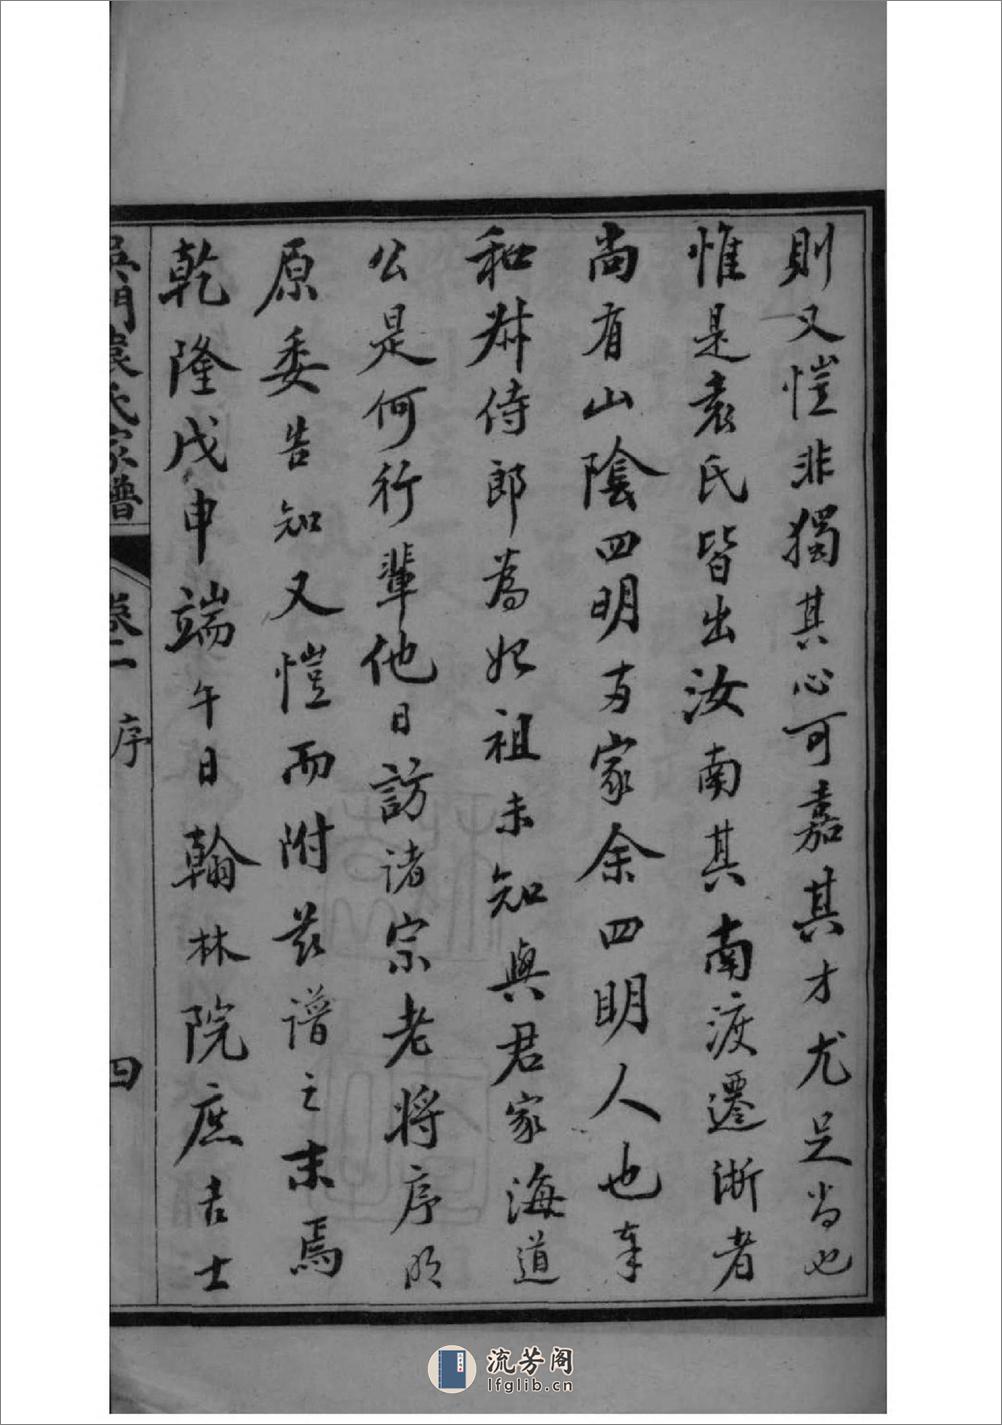 則又愷非獨其心可嘉其才尤足尚也
惟是袁氏皆出汝南其南渡遷浙者
尚有山陰四明两家余四明人也奉
和叔侍郎為始祖未知與君家海道
公是何行輩他日訪諸宗老將序明
原委告知又愷而附茲譜之末焉
乾隆戊申端午日翰林院庶吉士
吳門袁氏家譜
卷二
序
四
流芳阁
lfglib.cn